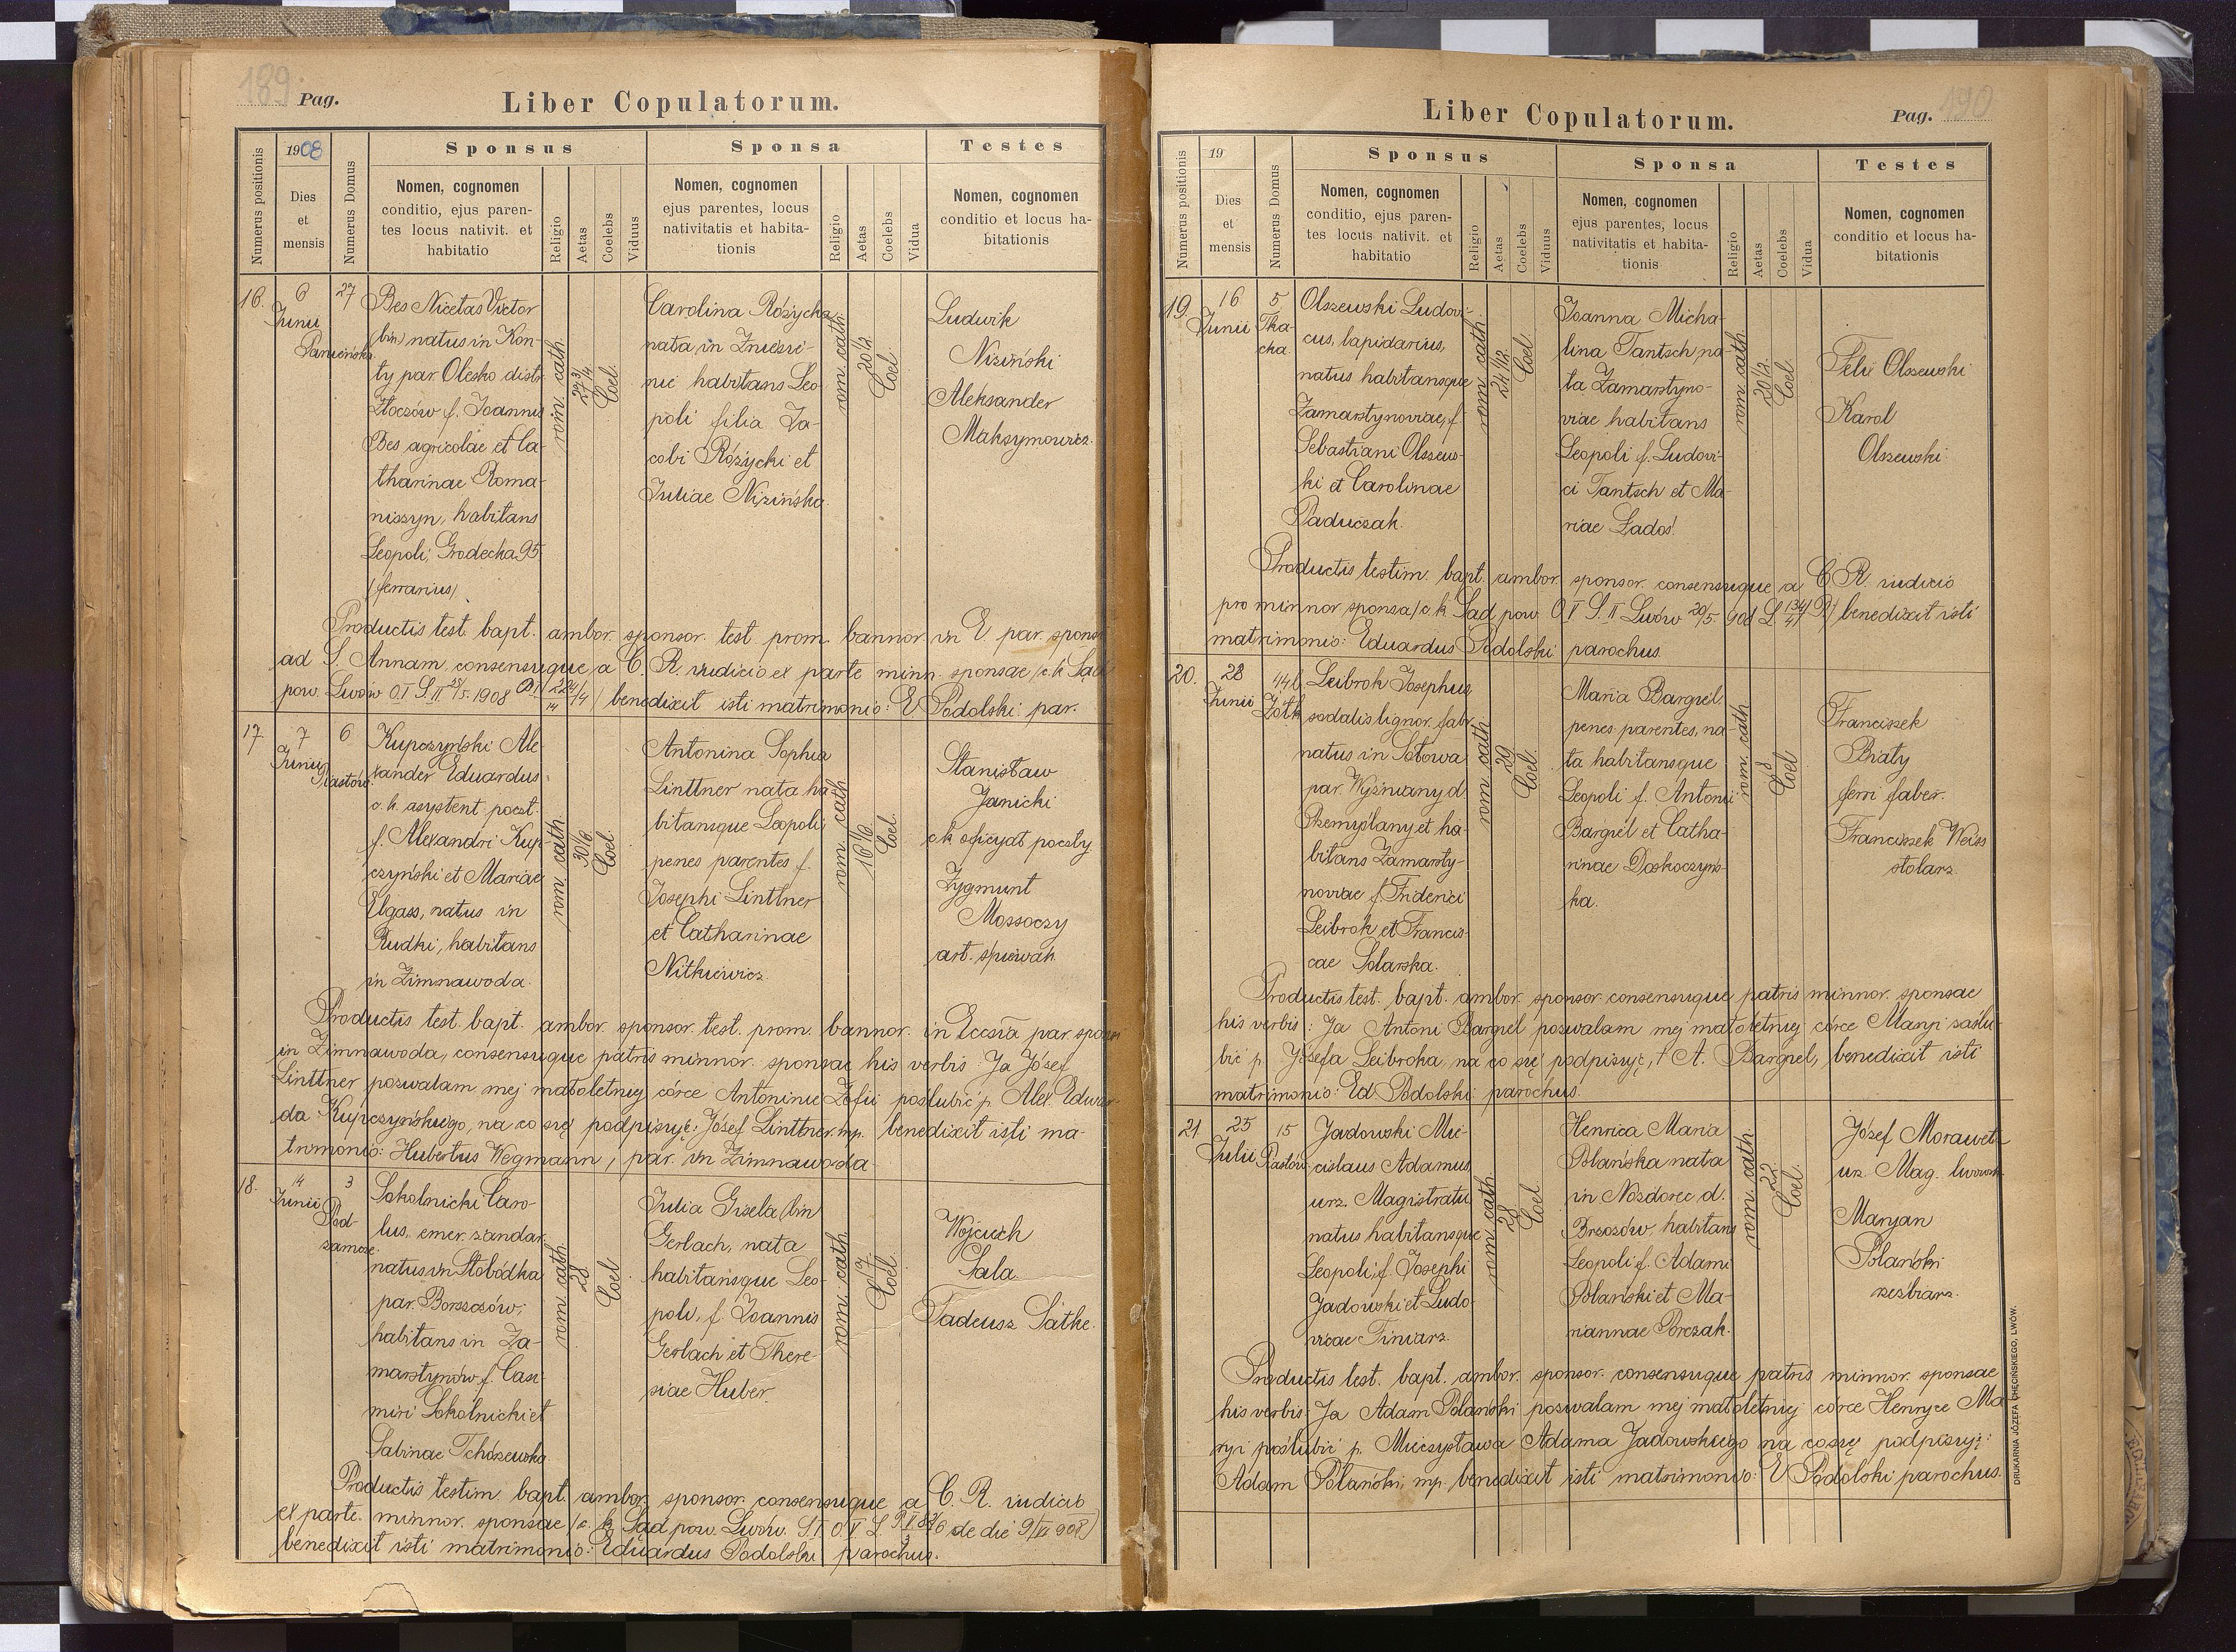 189 Pag.
Liber Copulatorum.
Numerus positionis
1908
Dies
et
mensis
Numerus Domus
Sponsus
Nomen, cognomen
conditio, ejus paren-
tes locus nativit. et
habitatio
Religio
Aetas
Coelebs
Viduus
Sponsa
Nomen, cognomen
ejus parentes, locus
nativitatis et habita-
tionis
Religio
Aetas
Coelebs
Vidua
Testes
Nomen, cognomen
conditio et locus ha-
bitationis
16.
6
Junii
27
Panieńska
Bes Nicetas Victor
(bin) natus in Kon-
ty par. Olesko distr.
Złoczów f. Joannis
Bes agricolae et Ca-
tharinae Roma-
niszyn, habitans
Leopoli, Grodecka 95
(ferrarius)
rom. cath.
27 3/4
Coel.
Carolina Różycka
nata in Zniesie-
nie habitans Leo-
poli filia Ja-
cobi Różycki et
Juliae Nizińska
rom. cath.
20 1/2
Coel.
Ludwik
Niziński
Aleksander
Maksymowicz.
Productis test. bapt. ambor. sponsor. test. prom. bannor. in E. par. spons
ad S. Annam, consensuque a C. R. iudicio ex parte minn. sponsae (c. k. Sąd
pow. Lwów O.I S.II 25/5. 1908 benedixit isti matrimonio: E Podolski par.
17
7
Junii
6
Piastów
Kupczyński Ale-
xander Eduardus
c. k. asystent poczt.
f. Alexandri Kup-
czyński et Mariae
Elgass, natus in
Rudki, habitans
in Zimnawoda.
rom. cath.
30 1/2
Coel.
Antonina Sophia
Linttner nata ha-
bitansque Leopoli
penes parentes f.
Josephi Linttner
et Catharinae
Nitkiewicz
rom. cath.
Coel.
Stanisław
Janicki
ck oficyał poczty
Zygmunt
Mossoczy
art. śpiewak
Productis test. bapt. ambor. sponsor. test. prom. bannor. in Eccsia par. sponsi
in Zimnawoda, consensuque patris minnor. sponsae his verbis Ja Józef
Linttner pozwalam mej małoletniej córce Antoninie Zofii poślubić p. Alex. Edwar-
da Kupczyńskiego, na co się podpisuję: Józef Linttner mp. benedixit isti ma-
trimonio: Hubertus Wegmann, par. in Zimnawoda
18.
14
Junii
3
Pod-
zamcze
Sokolnicki Caro-
lus, emer. żandar.
natus in Słobódka
par. Borszczów,
habitans in Za-
marstynów f. Casi-
miri Sokolnicki et
Sabinae Tchórzewska
rom. cath.
28
Coel
Julia Gisela (bin
Gerlach, nata
habitansque Leo-
poli, f. Joannis
Gerlach et There-
siae Huber
rom. cath.
17
Coel.
Wojciech
Sala
Tadeusz Satke.
Productis testim. bapt. ambor. sponsor. consensuque a C. R. iudicio
ex parte. minnor. sponsae (c. k. Sąd pow. Lwów. de die 9/VI 908)
benedixit isti matrimonio: Eduardus Podolski parochus.
Liber Copulatorum.
Pag. 190
Numerus positionis
19
Dies
et
mensis
Numerus Domus
Sponsus
Nomen, cognomen
conditio, ejus paren-
tes locus nativit. et
habitatio
Religio
Aetas
Coelebs
Viduus
Sponsa
Nomen, cognomen
ejus parentes, locus
nativitatis et habita-
tionis
Religio
Aetas
Coelebs
Vidua
Testes
Nomen, cognomen
conditio et locus ha-
bitationis
19.
16
Junii
5
Tka-
cka.
Olszewski Ludovi-
cus, lapidarius,
natus habitansque
Zamarstynoviae, f.
Sebastiani Olszews-
ki et Carolinae
Paduczak.
rom. cath.
24 1/2
Coel
Joanna Micha-
lina Tantsch na-
ta Zamarstyno-
viae habitans
Leopoli f. Ludovi-
ci Tantsch et Ma-
riae Ładoś.
rom. cath.
20 1/2.
Coel.
Felix Olszewski
Karol
Olszewski
Productis testim. bapt. ambor. sponsor. consensuque a C. R. iudicio
pro minnor sponsa (c. k. Sąd pow. O I S. II Lwów 20/5. 908 benedixit isti
matrimonio: Eduardus Podolski parochus.
20.
28
Junii
44b
Żółk
Leibrok Josephus
sodalis lignor. fabr.
natus in Sołowa
par. Wyżniany d
Przemyślany et ha-
bitans Zamarsty-
noviae f. Friderici
Leibrok et Francis-
cae Solarska.
rom cath
29
Coel.
Maria Bargiel
penes parentes, na-
ta habitansque
Leopoli f. Antonii
Bargiel et Catha-
rinae Doskoczyńs-
ka.
rom. cath
18
Coel
Franciszek
Biały
ferri faber.
Franciszek Weiss
stolarz.
Productis test. bapt. ambor. sponsor consensuque patris minnor. sponsae
his verbis: Ja Antoni Bargiel pozwalam mej małoletniej córce Maryi zaślu-
bić p. Józefa Leibroka, na co się podpisuję, † A. Bargiel, benedixit isti
matrimonio: Ed. Podolski parochus.
21
25
Julii
15
Piastów
Jadowski Mie-
cislaus Adamus
urz. Magistratu
natus habitansque
Leopoli, f. Josephi
Jadowski et Ludo-
vicae Finiarz.
rom. cath
28
Coel
Henrica Maria
Polańska nata
in Nozdrzec d.
Brzozów, habitans
Leopoli f. Adami
Polański et Ma-
riannae Porczak.
rom. cath
22
Coel.
Józef Morawetz
urz. Mag. lwowsk
Maryan
Polański
rzeźbiarz.
Productis test. bapt. ambor. sponsor. consensuque patris minnor. sponsae
his verbis: Ja Adam Polański pozwalam mej małoletniej córce Henryce Ma
ryi poślubić p. Mieczysława Adama Jadowskiego na co się podpisuję:
Adam Polański mp. benedixit isti matrimonio: E Podolski parochus.
DRUKARNIA JÓZEFA CHĘCIŃSKIEGO, LWÓW.